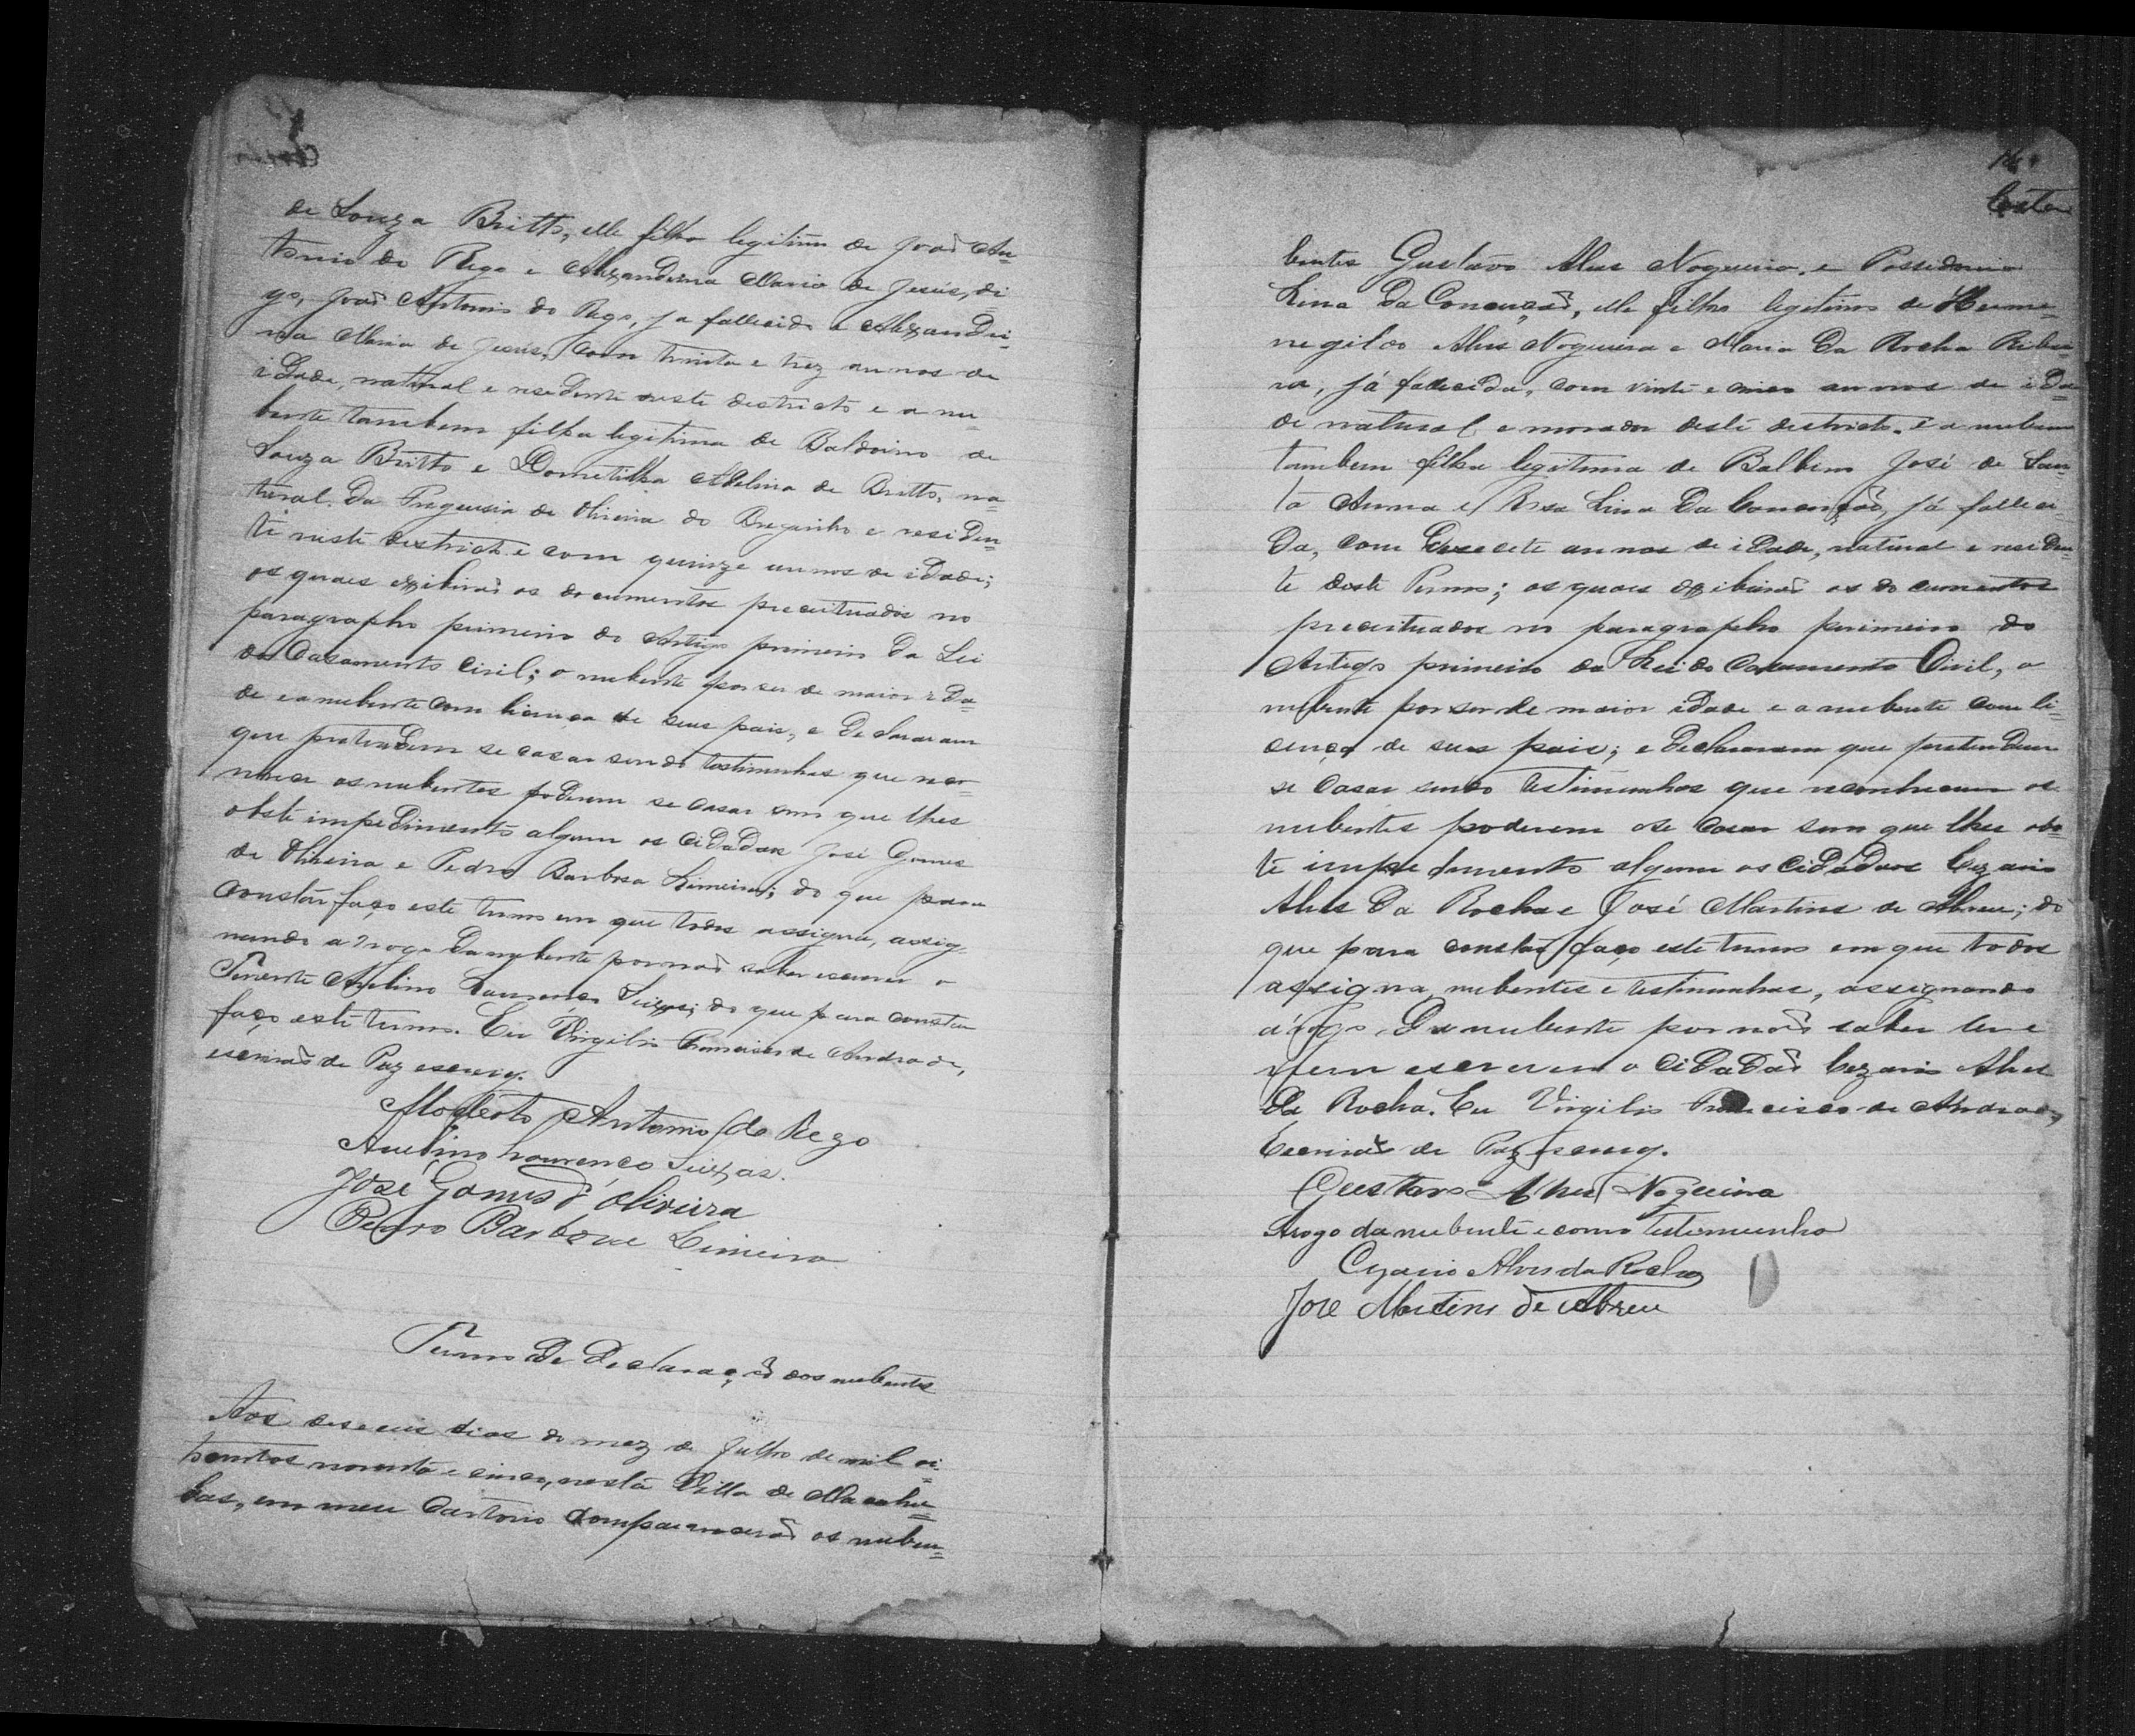 de Souza Britto, elle filho legitimo de João An=
tonio do Rego e Alexandrina Maria de Jesús, di
go, João Antonio do Rego, ja fallecido e Alexandri=
na Maria de Jesús, com trinta e trez annos de
idade, natural e residente neste districto e a nu=
bente tambem filha legitima de Baldoino de
Souza Britto e Dometilha Adelina de Britto, na=
tural da Freguesia de Oliveira do Breginho e residen=
te neste districto e com quinze annos de idade;
os quaes exhibirão os documentos preceituados no
paragrapho primeiro do Artigo primeiro da Lei
do Casamento Civil; o nubente por ser de maior ida=
de e a nubente com licença de seus pais, e declararam
que pretendem se casar sendo testimunhas que reco=
nhece os nubentes poderem se casar sem que lhes
obste impedimento algum os cidadãos José Gomes
de Oliveira e Pedro Barbosa Limeira; do que para
constar faço este termo em que todos assigna, assig=
nando a rogo da nubente por não saber escrever o
Tenente Avelino Lourenço Seixas; do que para constar
faço este termo. Eu Virgilio Francisco de Andrade,
escrivão de Paz escrevy.
Modesto Antonio do Rego
Avelino Lourenço Seixas.
José Gomes d'Oliveira
Pedro Barbosa Limeira
Termo de Declaração dos nubentes
Aos deseceis dias do mez de Julho de mil oi=
tocentos noventa e cinco, nesta Villa de Macahu=
bas, em meu Cartorio comparecerão os nuben=
16
bentes Gustavo Alves Nogueira, e Possidonia
Lina da Conceição, elle filho legitimo de Herme=
negildo Alves Nogueira e Maria da Rocha Ribei=
ra, já fallecida, com vinte e cinco annos de ida=
de natural e morador deste districto, e a nubente
tambem filha legitima de Balbino José de San=
ta Anna e Rosa Lina da Conceição, já falleci=
da, com desecete annos de idade, natural e residen=
te deste Termo; os quaes exhibirão os documentos
preceituados no paragrapho primeiro do
Artigo primeiro da Lei do Casamento Civil, o
nubente por ser de maior idade e a nubente com li=
cença de seus pais; e declararam que pretendem
se casar sendo testimunhas que reconhecem os
nubentes poderem se casar sem que lhes obs=
te impedimento algum os cidadãos Cezario
Alves da Rocha e José Martins de Abreu; do
que para constar faço este termo em que todos
assigna nubentes e testimunhas, assignando
a rogo da nubente por não saber ler e
nem escrever o cidadão Cezario Alves
da Rocha. Eu Virgilio Francisco de Andrade,
Escrivão de Paz escrevy.
Gustavo Alves Nogueira
Arogo da nubente e como testemunha
Cezario Alves da Rocha
José Martins de Abreu